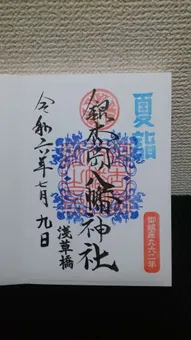 夏詣
御鎮座九六二年
銀杏岡八幡神社
浅草橋
令和六年七月九日